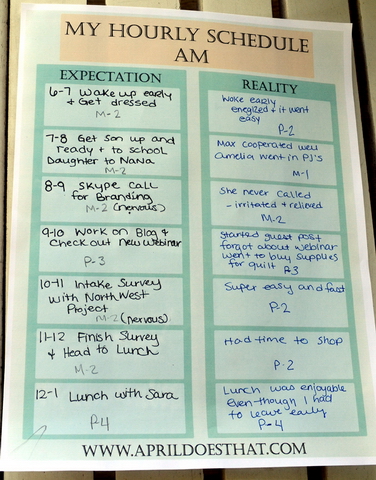 MY HOURLY SCHEDULE
AM
EXPECTATION
6-7 Wake up early
+ Get dressed
M-2
7-8 Get son up and
ready + to school
Daughter to Nana
M-2
8-9 Skype call
for Branding
M-2 (nervous)
9-10 Work on Blog &
Check out new webinar
P-3
10-11 Intake Survey
with NorthWest
Project
M-2 (nervous)
11-12 Finish Survey
& Head to Lunch
M-2
12-1 Lunch with Sara
P-4
REALITY
Woke early
energized + it went
easy
P-2
Max cooperated well
Amelia went in PJ's
M-1
She never called
- irritated + relieved
M-2
Started guest post
forgot about webinar
went to buy supplies
for quilt P-3
Super easy and fast
P-2
Had time to shop
P-2
Lunch was enjoyable
even though I had
to leave early
P-4
WWW.APRILDOESTHAT.COM